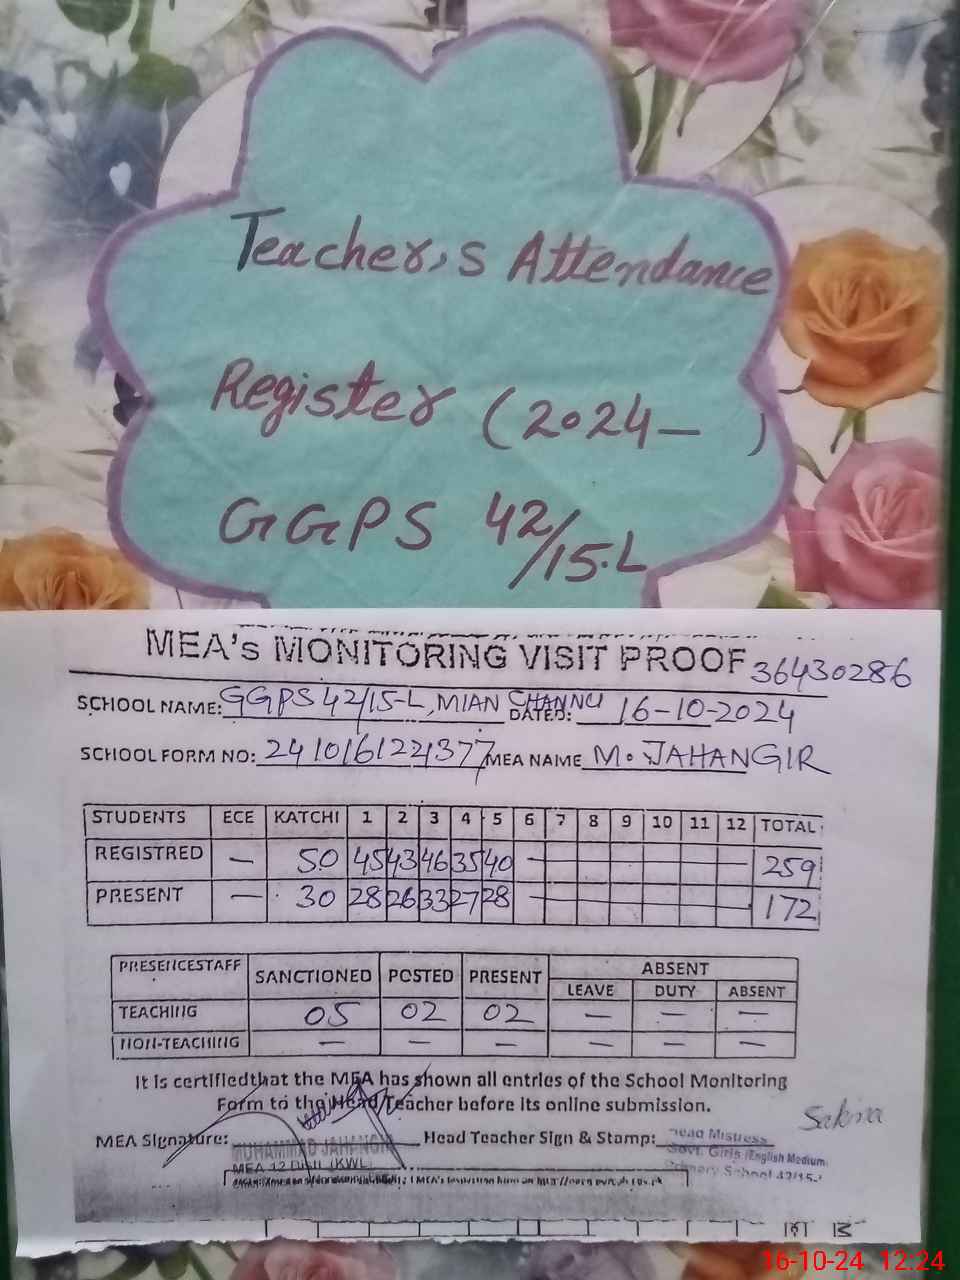 Teacher,s Attendance
Register (2024— )
GGPS 42/15.L
MEA's MONITORING VISIT PROOF 36430286
SCHOOL NAME: GGPS 42/15-L, MIAN CHANNU DATED: 16-10-2024
SCHOOL FORM NO: MEA NAME M. JAHANGIR
STUDENTS ECE KATCHI 1 2 3 4 5 6 7 8 9 10 11 12 TOTAL
REGISTRED — 50 45 43 46 35 40 — 259
PRESENT — 30 28 26 33 27 28 — 172
PRESENCESTAFF SANCTIONED POSTED PRESENT ABSENT
LEAVE DUTY ABSENT
TEACHING 05 02 02 — — —
NON-TEACHING — — — — — —
It is certifiedthat the MEA has shown all entries of the School Monitoring
Form to the Head Teacher before its online submission.
Sakina
MEA Signature: Head Teacher Sign & Stamp: Head Mistress
MUHAMMAD JAHANGIR Govt. Girls (English Medium)
MEA 12 Distt. (KWL) Primary School 42/15-
16-10-24 12:24